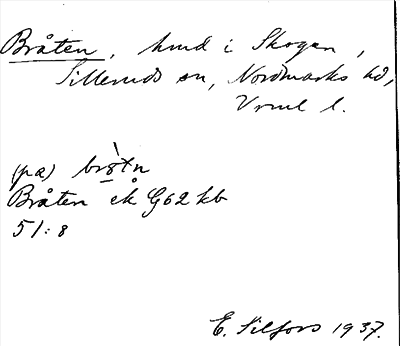 Bråten, hmd i Skogen,
Silleruds sn, Nordmarks hd,
Vrml l.
(på) bròtn
Bråten ek G62 kb
51:8
E. Kilfors 1937.